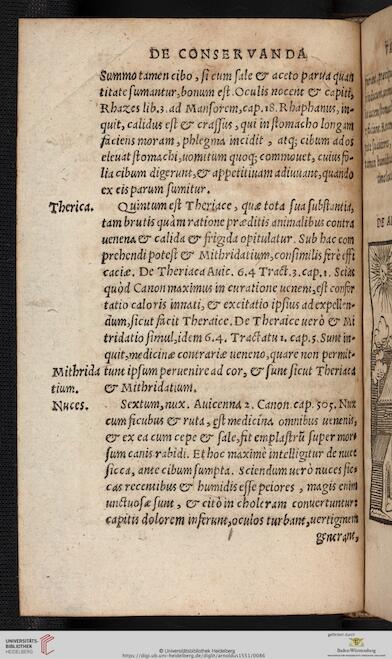 DE CONSERVANDA
Summo tamen cibo, si cum sale & aceto parua quan
titate sumantur, bonum est. Oculis nocent & capiti,
Rhazes lib. 3. ad Mansorem, cap. 18. Rhaphanus, in-
quit, calidus est & crassus, qui in stomacho longam
faciens moram, phlegma incidit, atq; cibum ad os
eleuat stomachi, uomitum quoq; commouet, cuius fo-
lia cibum digerunt, & appetitiuam adiuuant, quando
ex eis parum sumitur.
Therica. Quintum est Theriace, quæ tota sua substantia,
tam brutis quàm ratione præditis animalibus contra
uenena & calida & frigida opitulatur. Sub hac com
prehendi potest & Mithridatium, consimilis ferè effi
caciæ. De Theriaca Auic. 6.4 Tract. 3. cap. 1. Scias
quòd Canon maximus in curatione ueneni, est confor
tatio caloris innati, & excitatio ipsius ad expellen-
dum, sicut facit Theraice. De Theraice uerò & Mi
tridatio simul, idem 6.4. Tractatu 1. cap. 5. Sunt in-
quit, medicinæ contrariæ ueneno, quare non permit-
Mithrida tunt ipsum peruenire ad cor, & sunt sicut Theriaca
tium. & Mithridatium.
Nuces. Sextum, nux. Auicenna 2. Canon. cap. 505. Nux
cum ficubus & ruta, est medicina omnibus uenenis,
& ex ea cum cepe & sale, fit emplastrũ super mor-
sum canis rabidi. Et hoc maximè intelligitur de nuce
sicca, ante cibum sumpta. Sciendum uerò nuces sic-
cas recentibus & humidis esse peiores, magis enim
unctuosæ sunt, & citò in choleram conuertuntur:
capitis dolorem inferunt, oculos turbant, uertiginem
generant,
UNIVERSITÄTS-
BIBLIOTHEK
HEIDELBERG
© Universitätsbibliothek Heidelberg
https://digi.ub.uni-heidelberg.de/diglit/arnoldus1551/0086
gefördert durch
Baden-Württemberg